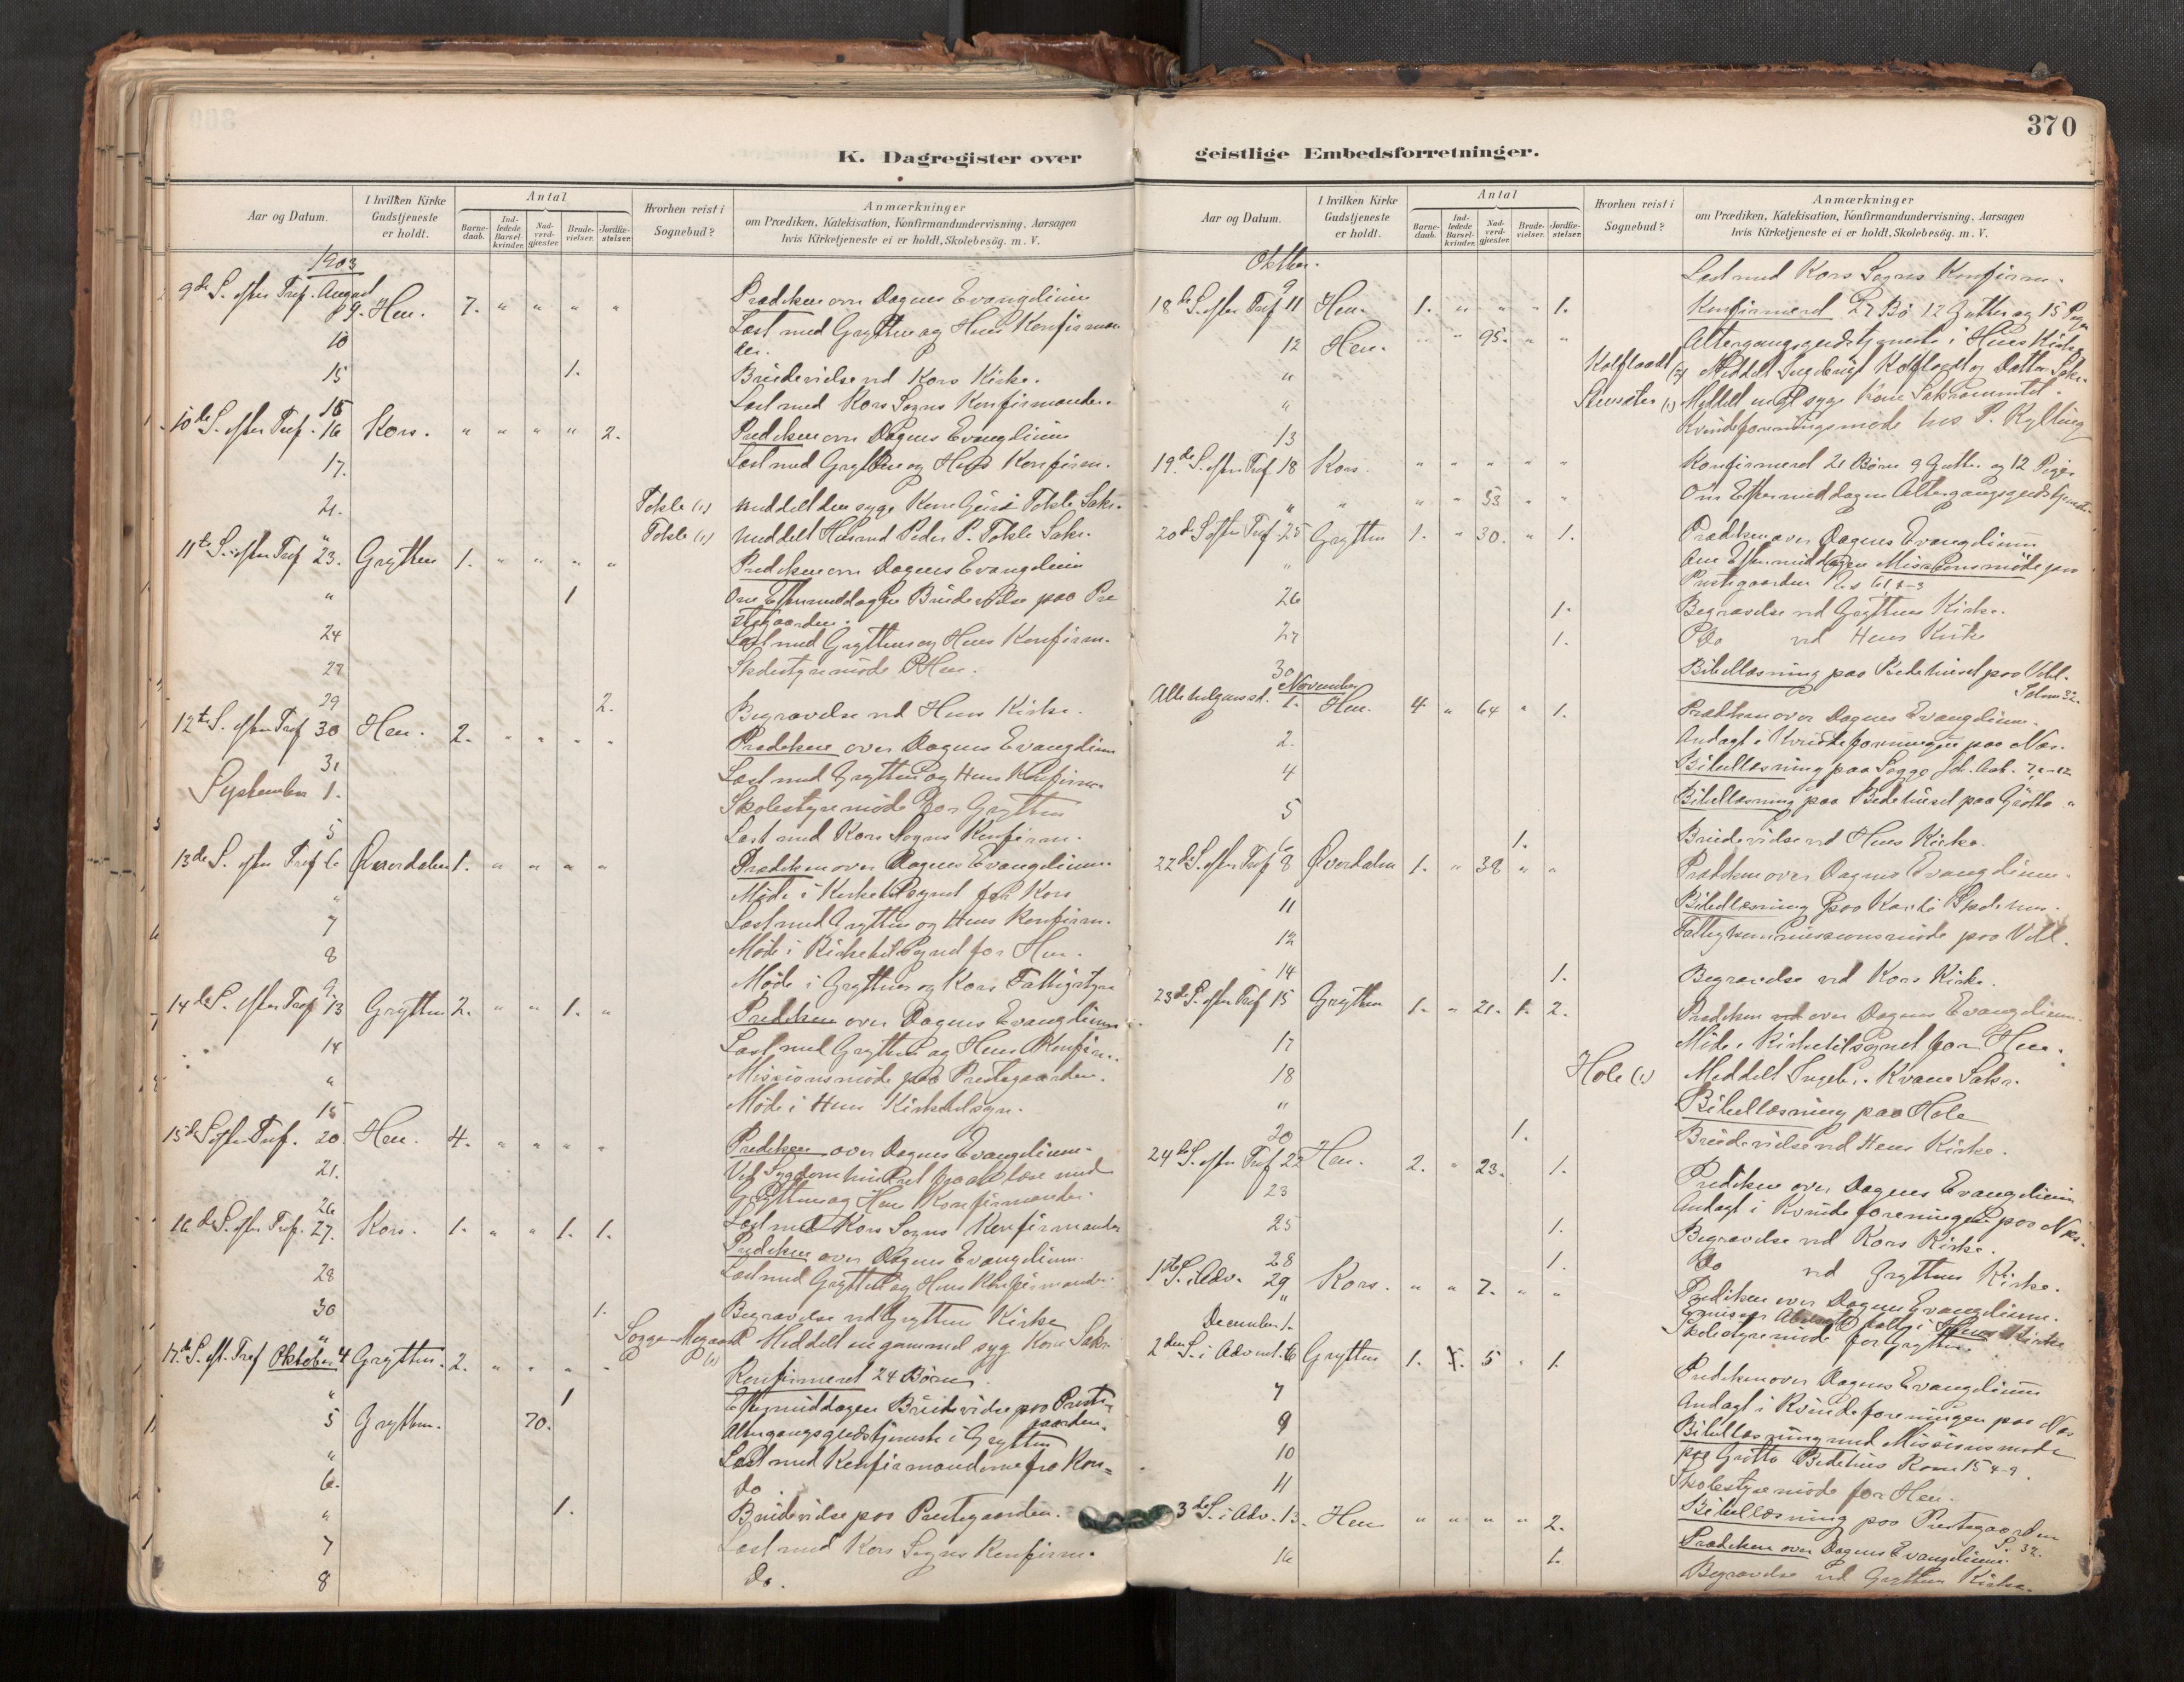 370
K. Dagregister over
Aar og Datum.
I hvilken Kirke Gudstjeneste er holdt.
Antal
Barnedaab.
Indledede Barselkvinder.
Nadverdgjester.
Brudevielser.
Jordfæstelser.
Hvorhen reist i Sognebud?
Anmærkninger
om Prædiken, Katekisation, Konfirmandundervisning, Aarsagen
hvis Kirketjeneste ei er holdt, Skolebesög. m. V.
1903
9de S. efter Tref. August 9. Hen. 7. " " " " Prædiken over Dagens Evangelium
10 Læst med Grytten og Hens Konfirman
der.
15 1. Brudevielse ved Kors Kirke.
15 Læst med Kors Sogns Konfirmander.
10de S. efter Tref. 16 Kors. " " " " 2. Prædiken over Dagens Evangelium
17. Læst med Grytten og Hens Konfirm.
21. Tokle (1) meddelt den syge Kone Tokle Sakr.
" Tokle (1) meddelt Husmd Peder P. Tokle Sakr.
11te S. efter Tref 23. Grytten 1. " " " " Prædiken over Dagens Evangelium
" 1 Om Eftermiddagen Brudevielse paa Pre
stegaarden.
24 Læst med Grytten og Hens Konfirm.
28 Skolestyremöde Hen.
29 2. Begravelse ved Hens Kirke.
12te S. efter Tref 30 Hen. 2. " " " " Prædiken over Dagens Evangelium
31 Læst med Grytten og Hens Konfirm.
September 1. Skolestyremöde for Grytten
5 Læst med Kors Sogns Konfirm.
13de S. efter Tref 6 Øverdalen 1. " " " " Prædiken over Dagens Evangelium.
" Möde i Kirketilsynet for Kors
7 Læst med Grytten og Hens Konfirm.
8 Möde i Kirketilsynet for Hen.
9 Möde i Gryttens og Kors Fattigstyre
14de S. efter Tref 13 Grytten 2. " " 1. " Prædiken over Dagens Evangelium.
14 Læst med Grytten og Hens Konfirm.
" Missionsmöde paa Prestegaarden.
15 Möde i Hens Kirketilsyn.
15de S efter Tref. 20. Hen. 4. " " " " Prædiken over Dagens Evangelium.
21. Ved Sygdom hindret fra at læse med
Gryttens og Hens Konfirmander.
26 Læst med Kors Sogns Konfirmander
16de S. efter Tref. 27. Kors. 1. " " 1. 1. Prædiken over Dagens Evangelium.
28 Læst med Grytten og Hens Konfirmander.
30 1. Begravelse ved Gryttens Kirke
" Sogge (1) Meddelt en gammel syg Kone Sakr.
17de S. eft. Tref Oktober 4 Grytten. 2. " " " " Konfirmeret 24 Börn
" 1 Eftermiddagen Brudevielse paa Preste-
gaarden.
5 Grytten. 70. Altergangsgudstjeneste i Grytten
" Læst med Konfirmanderne fra Kors
6. do
" 1. Brudevielse paa Prestegaarden.
7 Læst med Kors Sogns Konfirm.
8 do.
geistlige Embedsforretninger.
Aar og Datum.
I hvilken Kirke Gudstjeneste er holdt.
Antal
Barnedaab.
Indledede Barselkvinder.
Nadverdgjester.
Brudevielser.
Jordfæstelser.
Hvorhen reist i Sognebud?
Anmærkninger
om Prædiken, Katekisation, Konfirmandundervisning, Aarsagen
hvis Kirketjeneste ei er holdt, Skolebesög. m. V.
Oktbr.
9 Læst med Kors Sogns Konfirm.
18de S. efter Tref 11 Hen. 1. " " " 1. Konfirmered 27 Bö 12 Gutter og 15 Piger
12 Hen. " " 95. " " Altergangsgudstjeneste i Hens Kirke
" Kolflaadt (2) Meddelt Ingebrigt Kolflaadt og Datter Sakr.
" Stensæter (1) Meddelt syge Kone Sakramentet.
13 Kvindeforeningsmöde hos P. Kylling
19de S. efter Tref 18 Kors. " " " " " Konfirmered 21 Börn 9 Gutt. og 12 Piger
" " " " 53 " " Om Eftermiddagen Altergangsgudstjeneste
20de S efter Tref. 25 Grytten 1. " 30. " 1. Prædiken over Dagens Evangelium
" Om Eftermiddagen Missionsmöde paa
Prestegaarden Es 61 1-3
26 1. Begravelse ved Gryttens Kirke.
27 1. Do ved Hens Kirke
30 Bibellæsning paa Bedehuset paa Vebl.
Salme 32.
Allehelgensd. November 1. Hen. 4 " 64 " 1. Prædiken over Dagens Evangelium.
2. Andagt i Kvindeforeningen paa Næs.
4 Bibellæsning paa Sogge Joh. Aab.
5 Bibellæsning paa Bedehuset paa Grötta "
6 1. Brudevielse ved Hens Kirke.
22de S. efter Tref 8 Øverdalen 1. " 38 " " Prædiken over Dagens Evangelium.
11 Bibellæsning paa Kavli
12 Fattigkommissionsmöde paa Vebl.
14 1. Begravelse ved Kors Kirke.
23de S. efter Tref 15 Grytten 1. " 21. 1. 2. Prædiken over Dagens Evangelium.
17 Möde i Kirketilsynet for Hen.
18 Hole (1) Meddelt Ingeb. Kvane Sakr.
" Bibellæsning paa Hole
20 1. Brudevielse ved Hens Kirke.
24de S. efter Tref 22 Hen. 2. " 23. 1. Prædiken over Dagens Evangelium
23 Andagt i Kvindeforeningen paa Næs.
25 1. Begravelse ved Kors Kirke.
28 1. Do ved Gryttens Kirke.
1ste S. i Adv. 29 Kors. " " 7. " " Prædiken over Dagens Evangelium.
" Emissær talte i Hens Kirke
December 1. Skolestyremöde for Grytten.
2den S. i Advent. 6 Grytten 1. 5 " 1. Prædiken over Dagens Evangelium
7 Andagt i Kvindeforeningen paa Næs
9 Bibellæsning med Missionsmöde
paa Grötta Bedehus Rom 15 4-9.
10 Skolestyremöde for Hen.
11 Bibellæsning paa Prestegaarden
S. 32.
3de S. i Adv. 13. Hen " " " " 2. Prædiken over Dagens Evangelium.
16 1. Begravelse ved Gryttens Kirke.